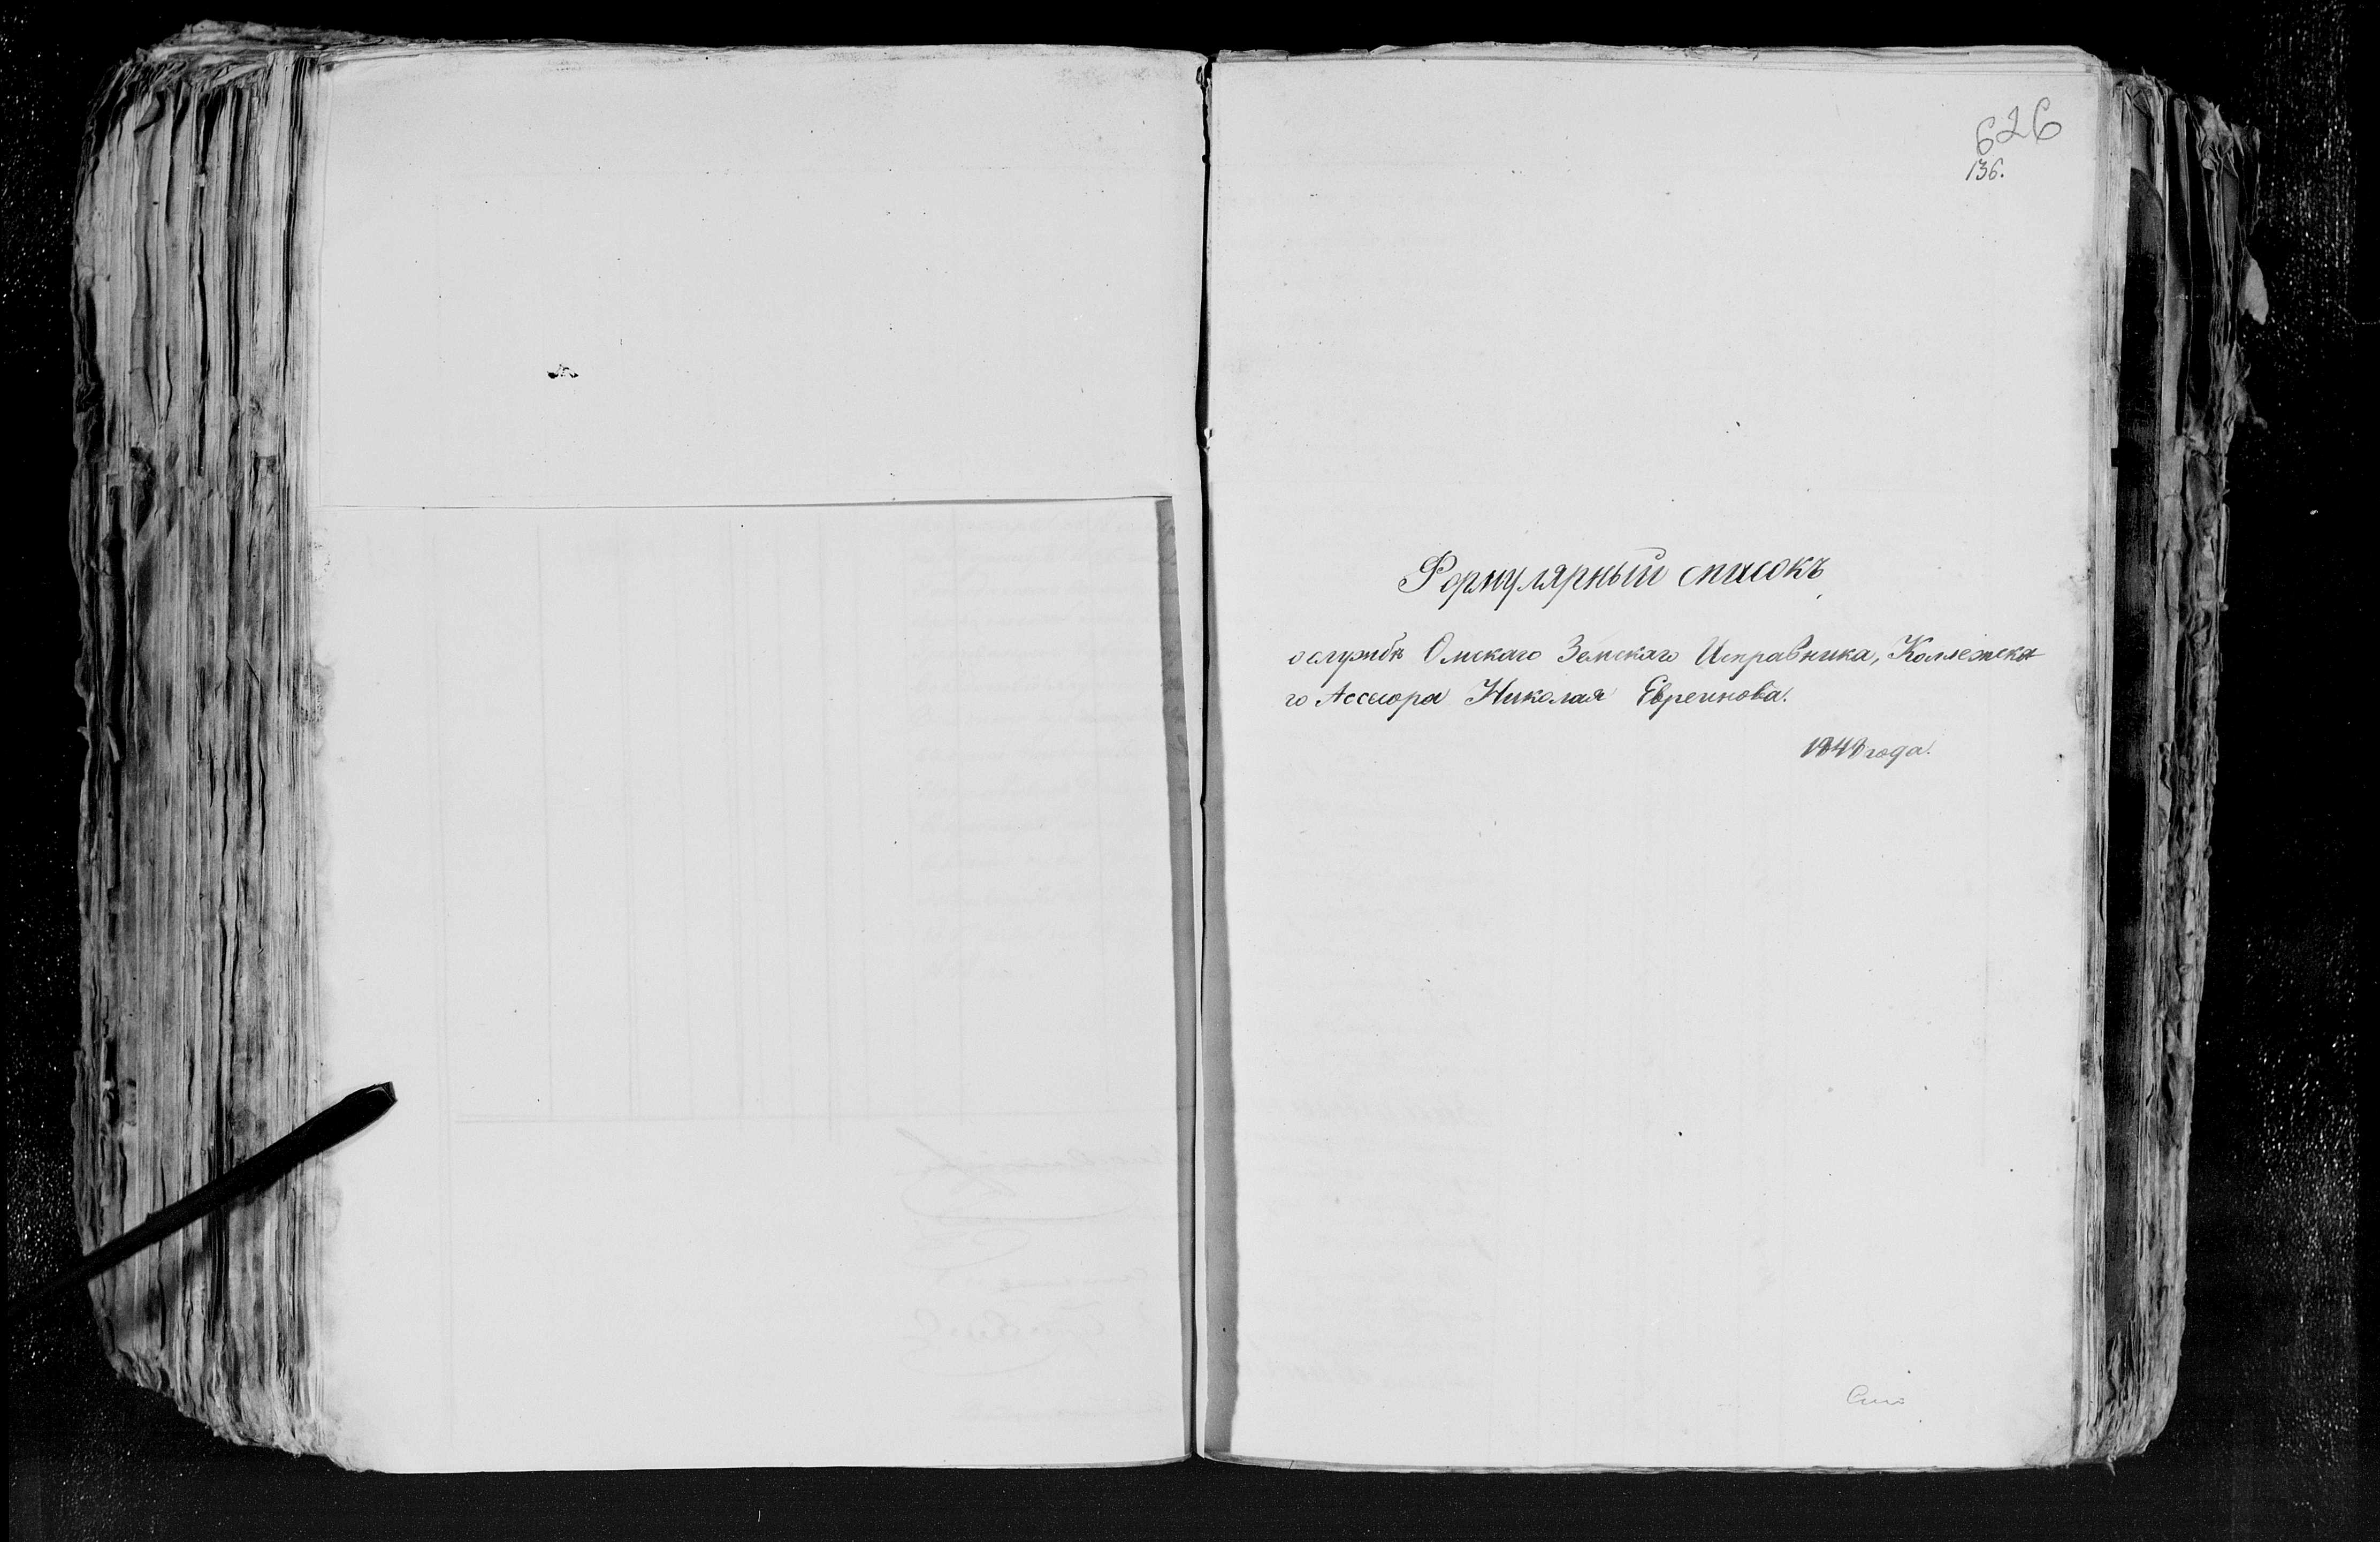 626
136.
Формулярный списокъ
о службѣ Омскаго Земскаго Исправника, Коллежска
го Ассесора Николая Евреинова.
1848 года.